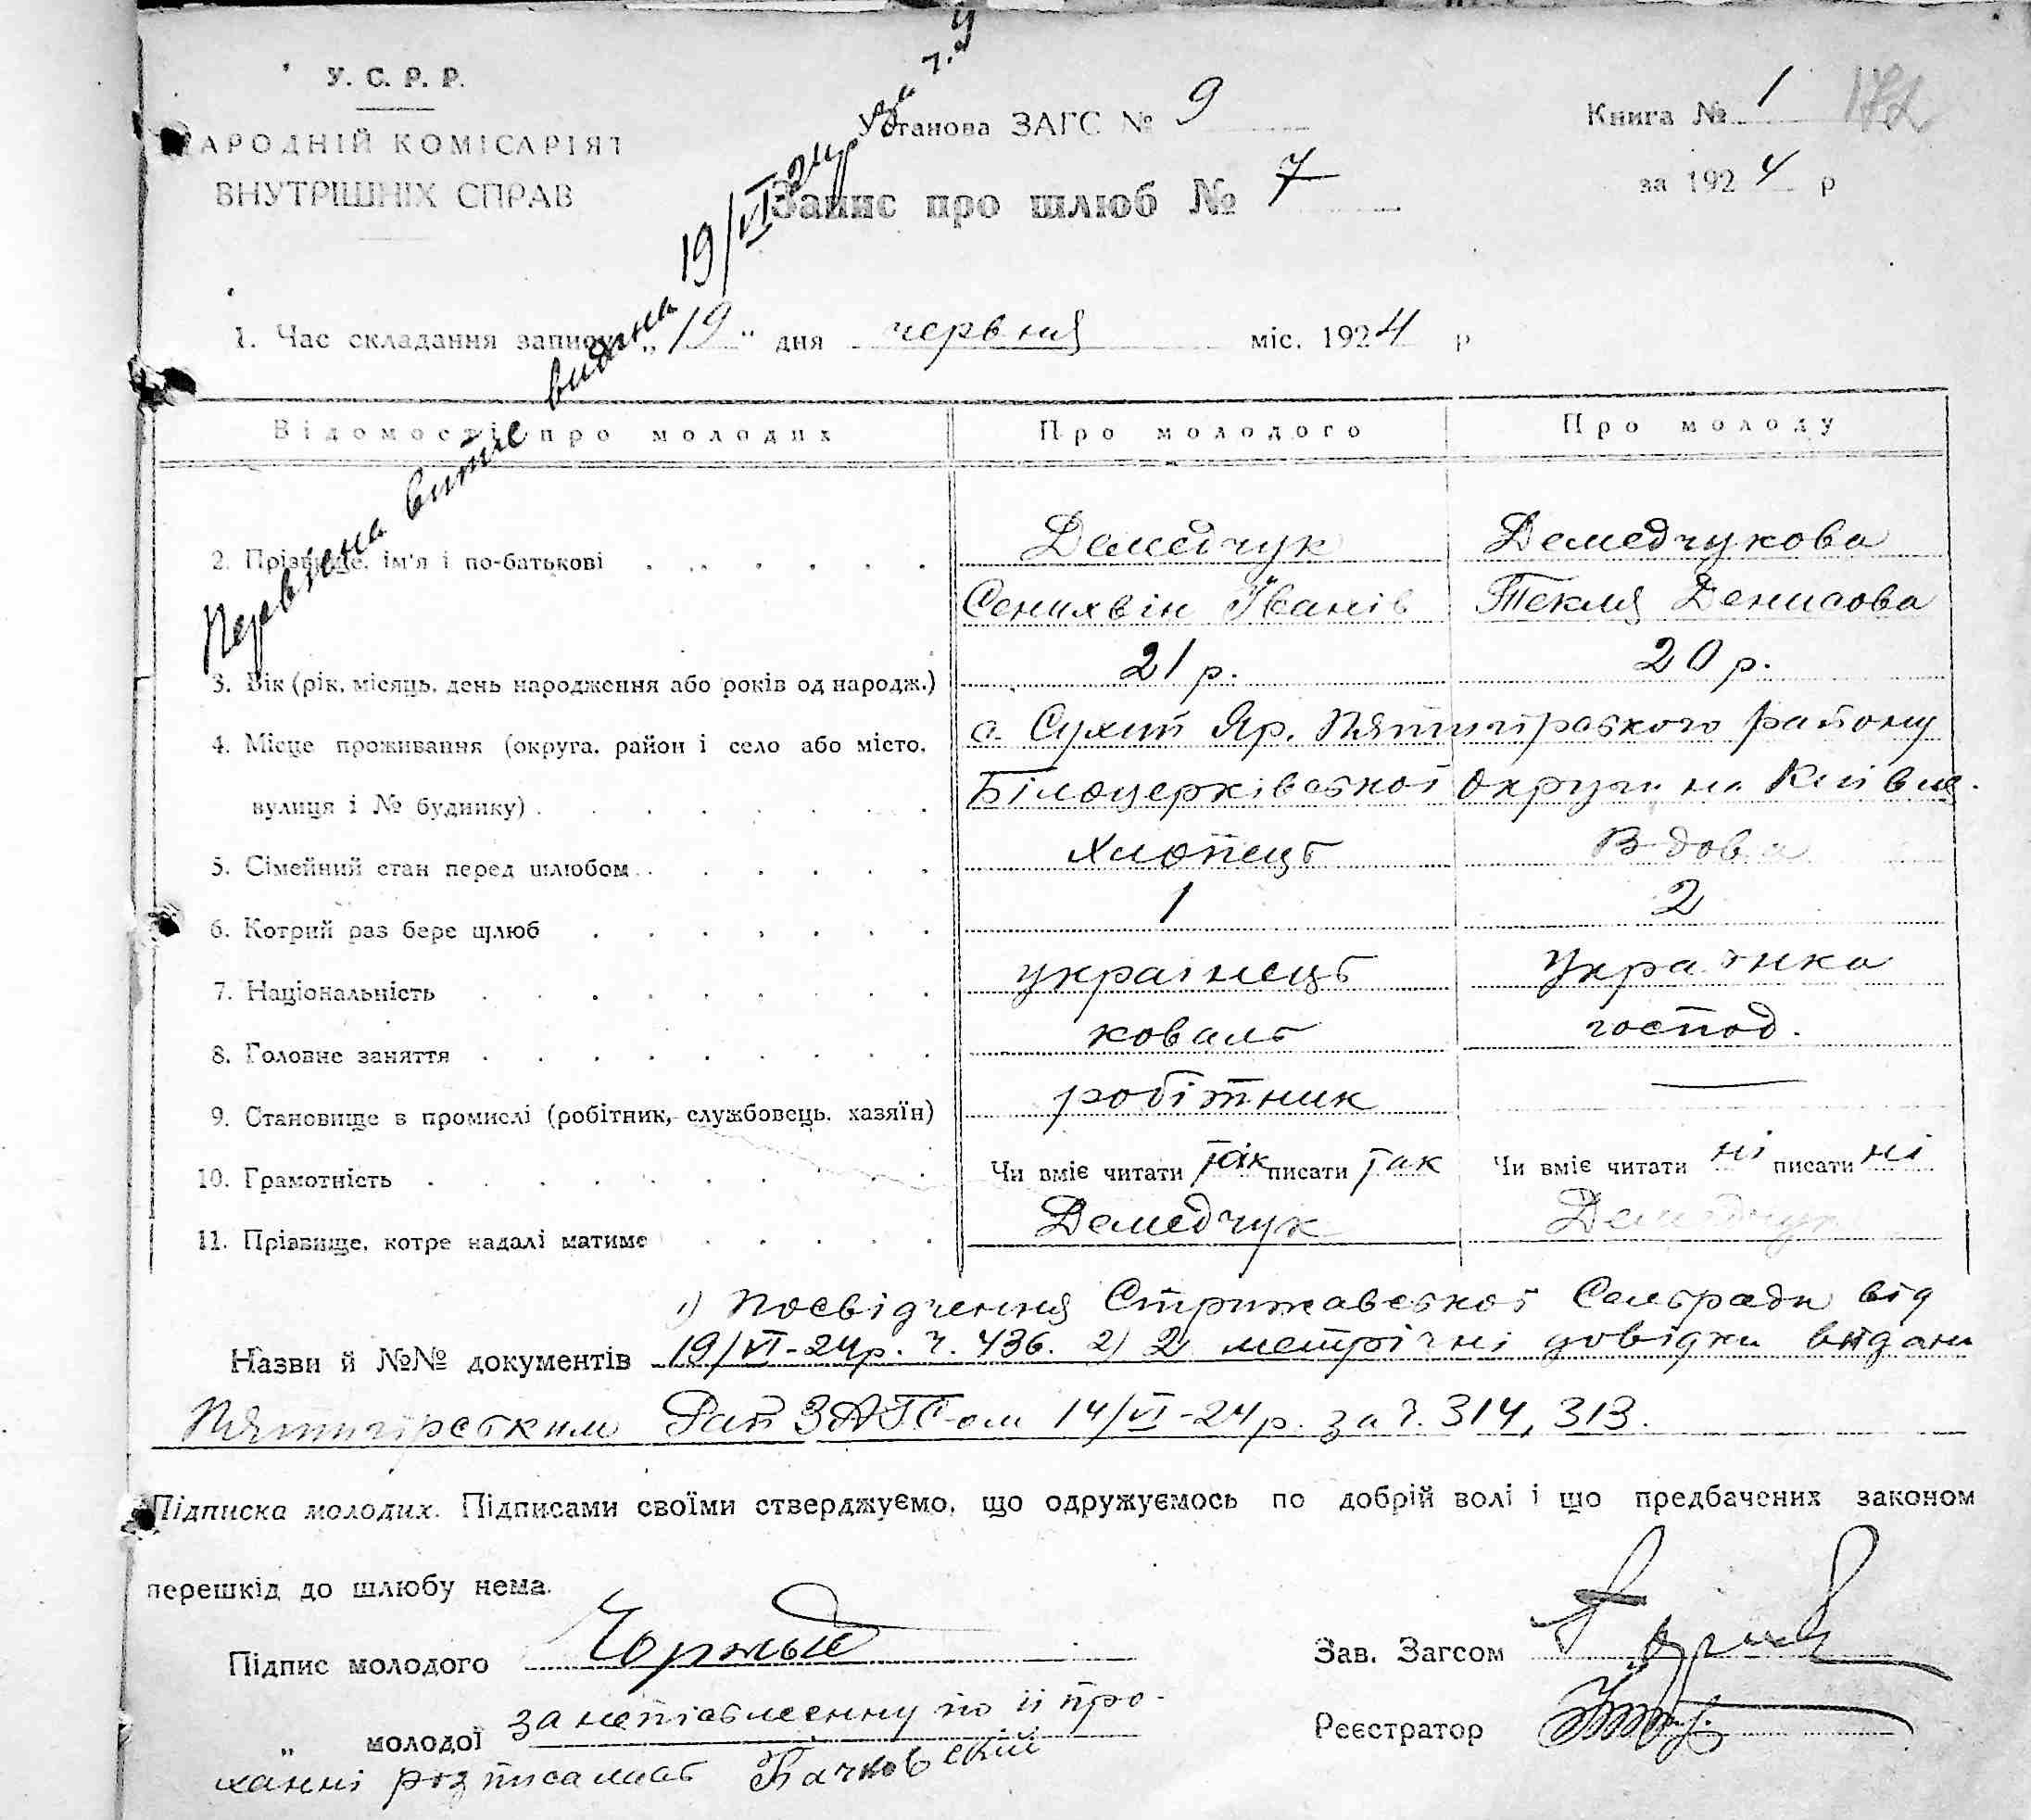 У. С. Р. Р.
НАРОДНІЙ КОМІСАРІЯТ
ВНУТРІШНІХ СПРАВ
Установа ЗАГС № 9
Книга № 1 172
за 1924 р
Запис про шлюб № 7
Первісна витяг видана 19/VI-24р за ч. 9
1. Час складання запису „19“ дня червня міс. 1924 р
Відомості про молодих Про молодого Про молоду
2. Прізвище, ім'я і по-батькові Демедчук Демедчукова
Іванів Текля Денисова
3. Вік (рік, місяць, день народження або років од народж.) 21 р. 20 р.
4. Місце проживання (округа, район і село або місто, с. Сухий Яр, Пятигірського району
вулиця і № будинку) Білоцерківської округи на Київщ.
5. Сімейний стан перед шлюбом хлопець Вдова
6. Котрий раз бере шлюб 1 2
7. Національність українець українка
8. Головне заняття коваль господ.
9. Становище в промислі (робітник, службовець, хазяїн) робітник —
10. Грамотність Чи вміє читати так писати так Чи вміє читати ні писати ні
11. Прізвище, котре надалі матиме Демедчук Демедчук
1) Посвідчення Стрижавської Сельради від
Назви й №№ документів 19/VI-24р. ч. 436. 2) 2 метрічні довідки видани
Пятигірським РайЗАГС-ом 14/VI-24р. за ч. 314, 313.
Підписка молодих. Підписами своїми стверджуємо, що одружуємось по добрій волі і що предбачених законом
перешкід до шлюбу нема.
Підпис молодого
Зав. Загсом
„ молодої за неписьменну по її про-
Реєстратор
ханні розписалась Бачковский